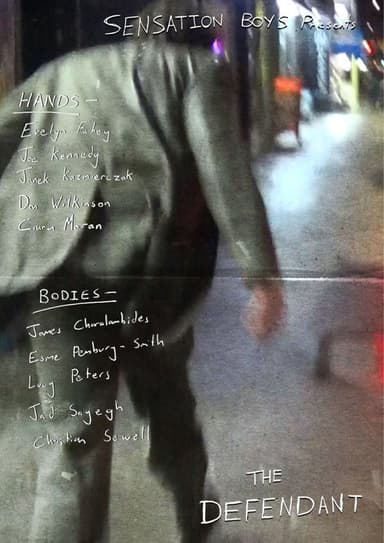 SENSATION BOYS Presents
HANDS –
Evelyn Fahey
Joe Kennedy
Janek Kazmierczak
Dan Wilkinson
Ciaran Moran
BODIES –
James Charalambides
Esme Penbury-Smith
Lucy Peters
Jad Sayegh
Christian Sowell
THE
DEFENDANT